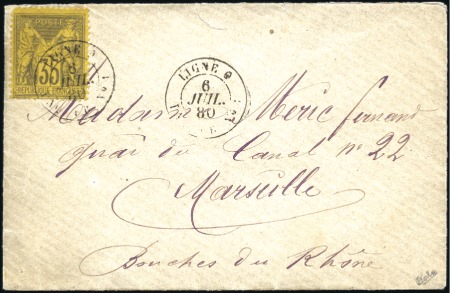 POSTE
35
REPUBLIQUE FRANCAISE
LIGNE
6
JUIL.
80
Madame Meric fernand
quai du Canal n° 22
Marseille
Bouches du Rhône